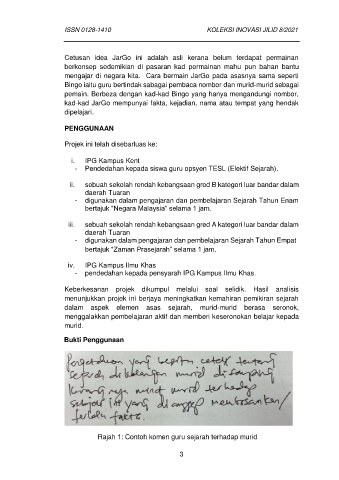 ISSN 0128-1410 KOLEKSI INOVASI JILID 8/2021
Cetusan idea JarGo ini adalah asli kerana belum terdapat permainan
berkonsep sedemikian di pasaran kad permainan mahu pun bahan bantu
mengajar di negara kita. Cara bermain JarGo pada asasnya sama seperti
Bingo iaitu guru bertindak sabagai pembaca nombor dan murid-murid sebagai
pemain. Berbeza dengan kad-kad Bingo yang hanya mengandungi nombor,
kad-kad JarGo mempunyai fakta, kejadian, nama atau tempat yang hendak
dipelajari.
PENGGUNAAN
Projek ini telah disebarluas ke:
i. IPG Kampus Kent
- Pendedahan kepada siswa guru opsyen TESL (Elektif Sejarah).
ii. sebuah sekolah rendah kebangsaan gred B kategori luar bandar dalam
daerah Tuaran
- digunakan dalam pengajaran dan pembelajaran Sejarah Tahun Enam
bertajuk "Negara Malaysia" selama 1 jam.
iii. sebuah sekolah rendah kebangsaan gred A kategori luar bandar dalam
daerah Tuaran
- digunakan dalam pengajaran dan pembelajaran Sejarah Tahun Empat
bertajuk "Zaman Prasejarah" selama 1 jam.
iv. IPG Kampus Ilmu Khas
- pendedahan kepada pensyarah IPG Kampus Ilmu Khas.
Keberkesanan projek dikumpul melalui soal selidik. Hasil analisis
menunjukkan projek ini berjaya meningkatkan kemahiran pemikiran sejarah
dalam aspek elemen asas sejarah, murid-murid berasa seronok,
menggalakkan pembelajaran aktif dan memberi keseronokan belajar kepada
murid.
Bukti Penggunaan
Pengetahuan yang begitu cetek tentang
sejarah di kalangan murid di samping
kurang nya minat murid terhadap
subjek ini yang dianggap membosankan/
terlalu fakta.
Rajah 1: Contoh komen guru sejarah terhadap murid
3